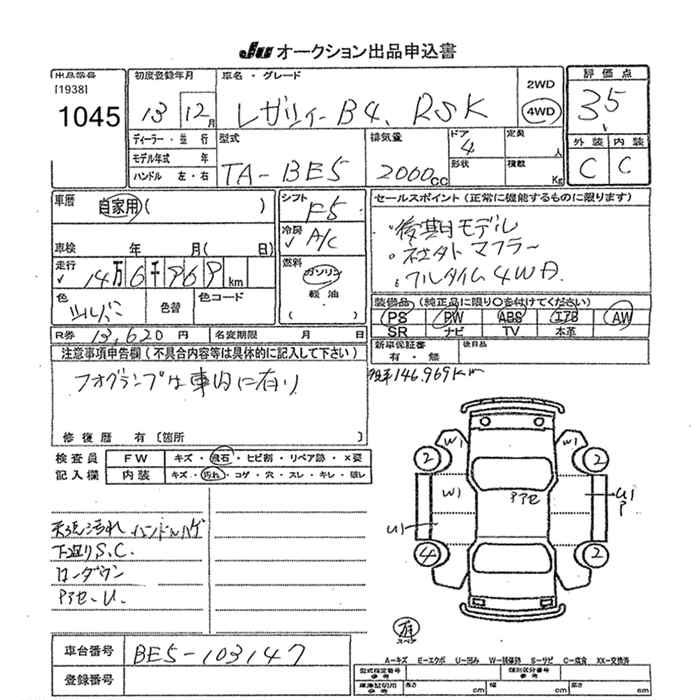 JU オークション出品申込書
出品番号 [1938] 1045
初度登録年月 13 12月
車名・グレード レガシィB4、RSK
2WD 4WD
評価点 3.5
ディーラー・並行
モデル年式 年
ハンドル 左・右
型式 TA-BE5
排気量 2000cc
ドア 4
形状
定員 人
積載 Kg
外装 内装
C C
車歴 自家用( )
シフト F5
冷房 A/C
車検 年 月( 日)
走行 14万6千969km
燃料 ガソリン
軽油
( )
色 シルバー
色替
色コード
R券 13,620円
名変期限 月 日
セールスポイント(正常に機能するものに限ります)
・後期モデル
・社外マフラー
・フルタイム4WD
装備品(純正品に限り○を付けてください)
PS PW ABS エアB AW
SR ナビ TV 本革
新車保証書 有・無
後日品
146,969Km
注意事項申告欄(不具合内容等は具体的に記入して下さい)
フォグランプは車内に有り
修復歴 有〔箇所 〕
検査員記入欄
FW キズ・飛石・ヒビ割・リペア跡・×要
内装 キズ・汚れ・コゲ・穴・スレ・キレ・破レ
天張汚れ ハンドルハゲ
下廻りS.C.
ローダウン
アアセ.U.
W1 W1 W1
2 2 4 2
アアセ
U1
U1 P
有 スペア
車台番号 BE5-103147
登録番号
A-キズ E-エクボ U-凹み W-補修跡 S-サビ C-腐食 XX-交換済
型式指定番号 参考
類別区分番号 参考
車庫証明用 参考
長さ cm
幅 cm
高さ cm